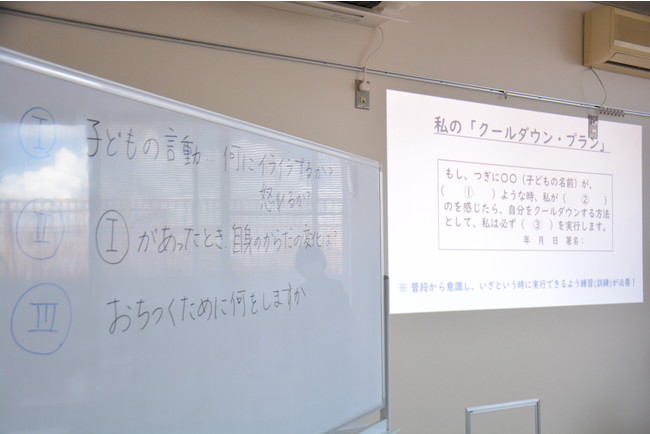 Ⅰ 子どもの言動 何にイライラするか?
怒れるか?
Ⅱ Ⅰがあったとき、自身のからだの変化は?
Ⅲ おちつくために何をしますか
私の「クールダウン・プラン」
もし、つぎに〇〇（子どもの名前）が、
（ ① ）ような時、私が（ ② ）
のを感じたら、自分をクールダウンする方法
として、私は必ず（ ③ ）を実行します。
年 月 日 署名:
※ 普段から意識し、いざという時に実行できるよう練習(訓練)が必要！